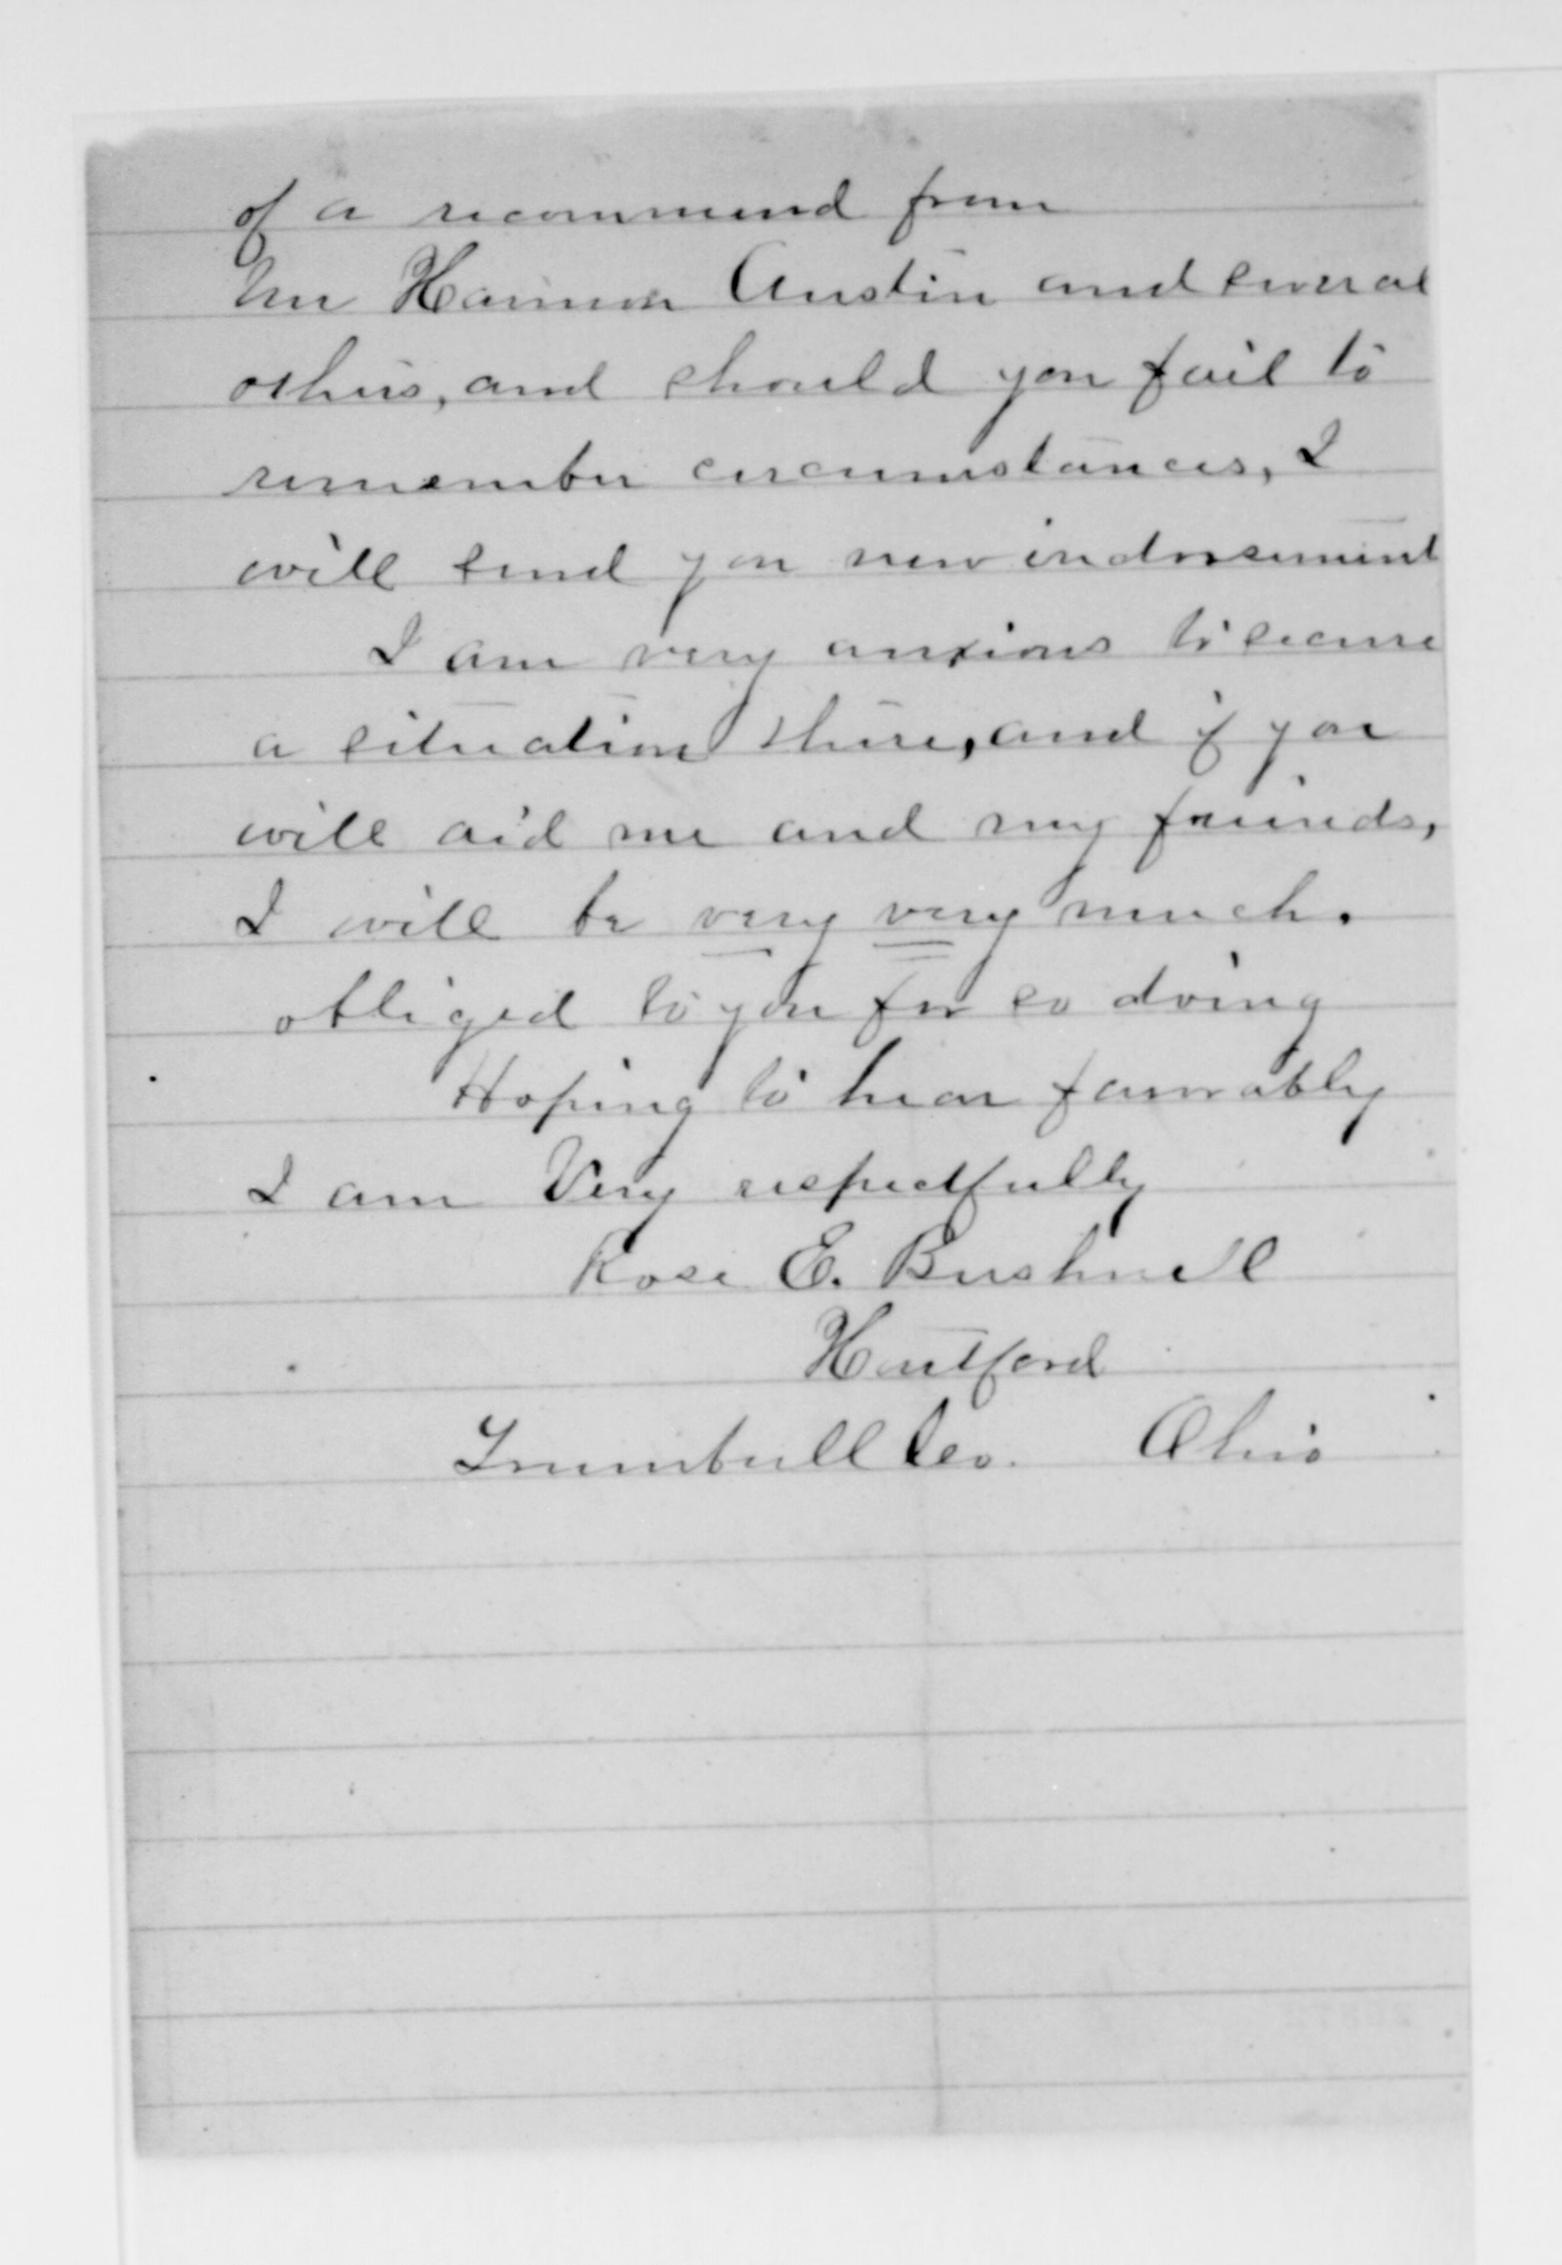 of a recommend from
Mr Harmon Austin and several
others, and should you fail to
remember circumstances, I
will send you new indorsement
I am very anxious to secure
a situation there, and if you
will aid me and my friends,
I will be very very much.
obliged to you for so doing
Hoping to hear favorably
I am Very respectfully
Rose E. Bushnell
Hartford
Trumbull Co. Ohio